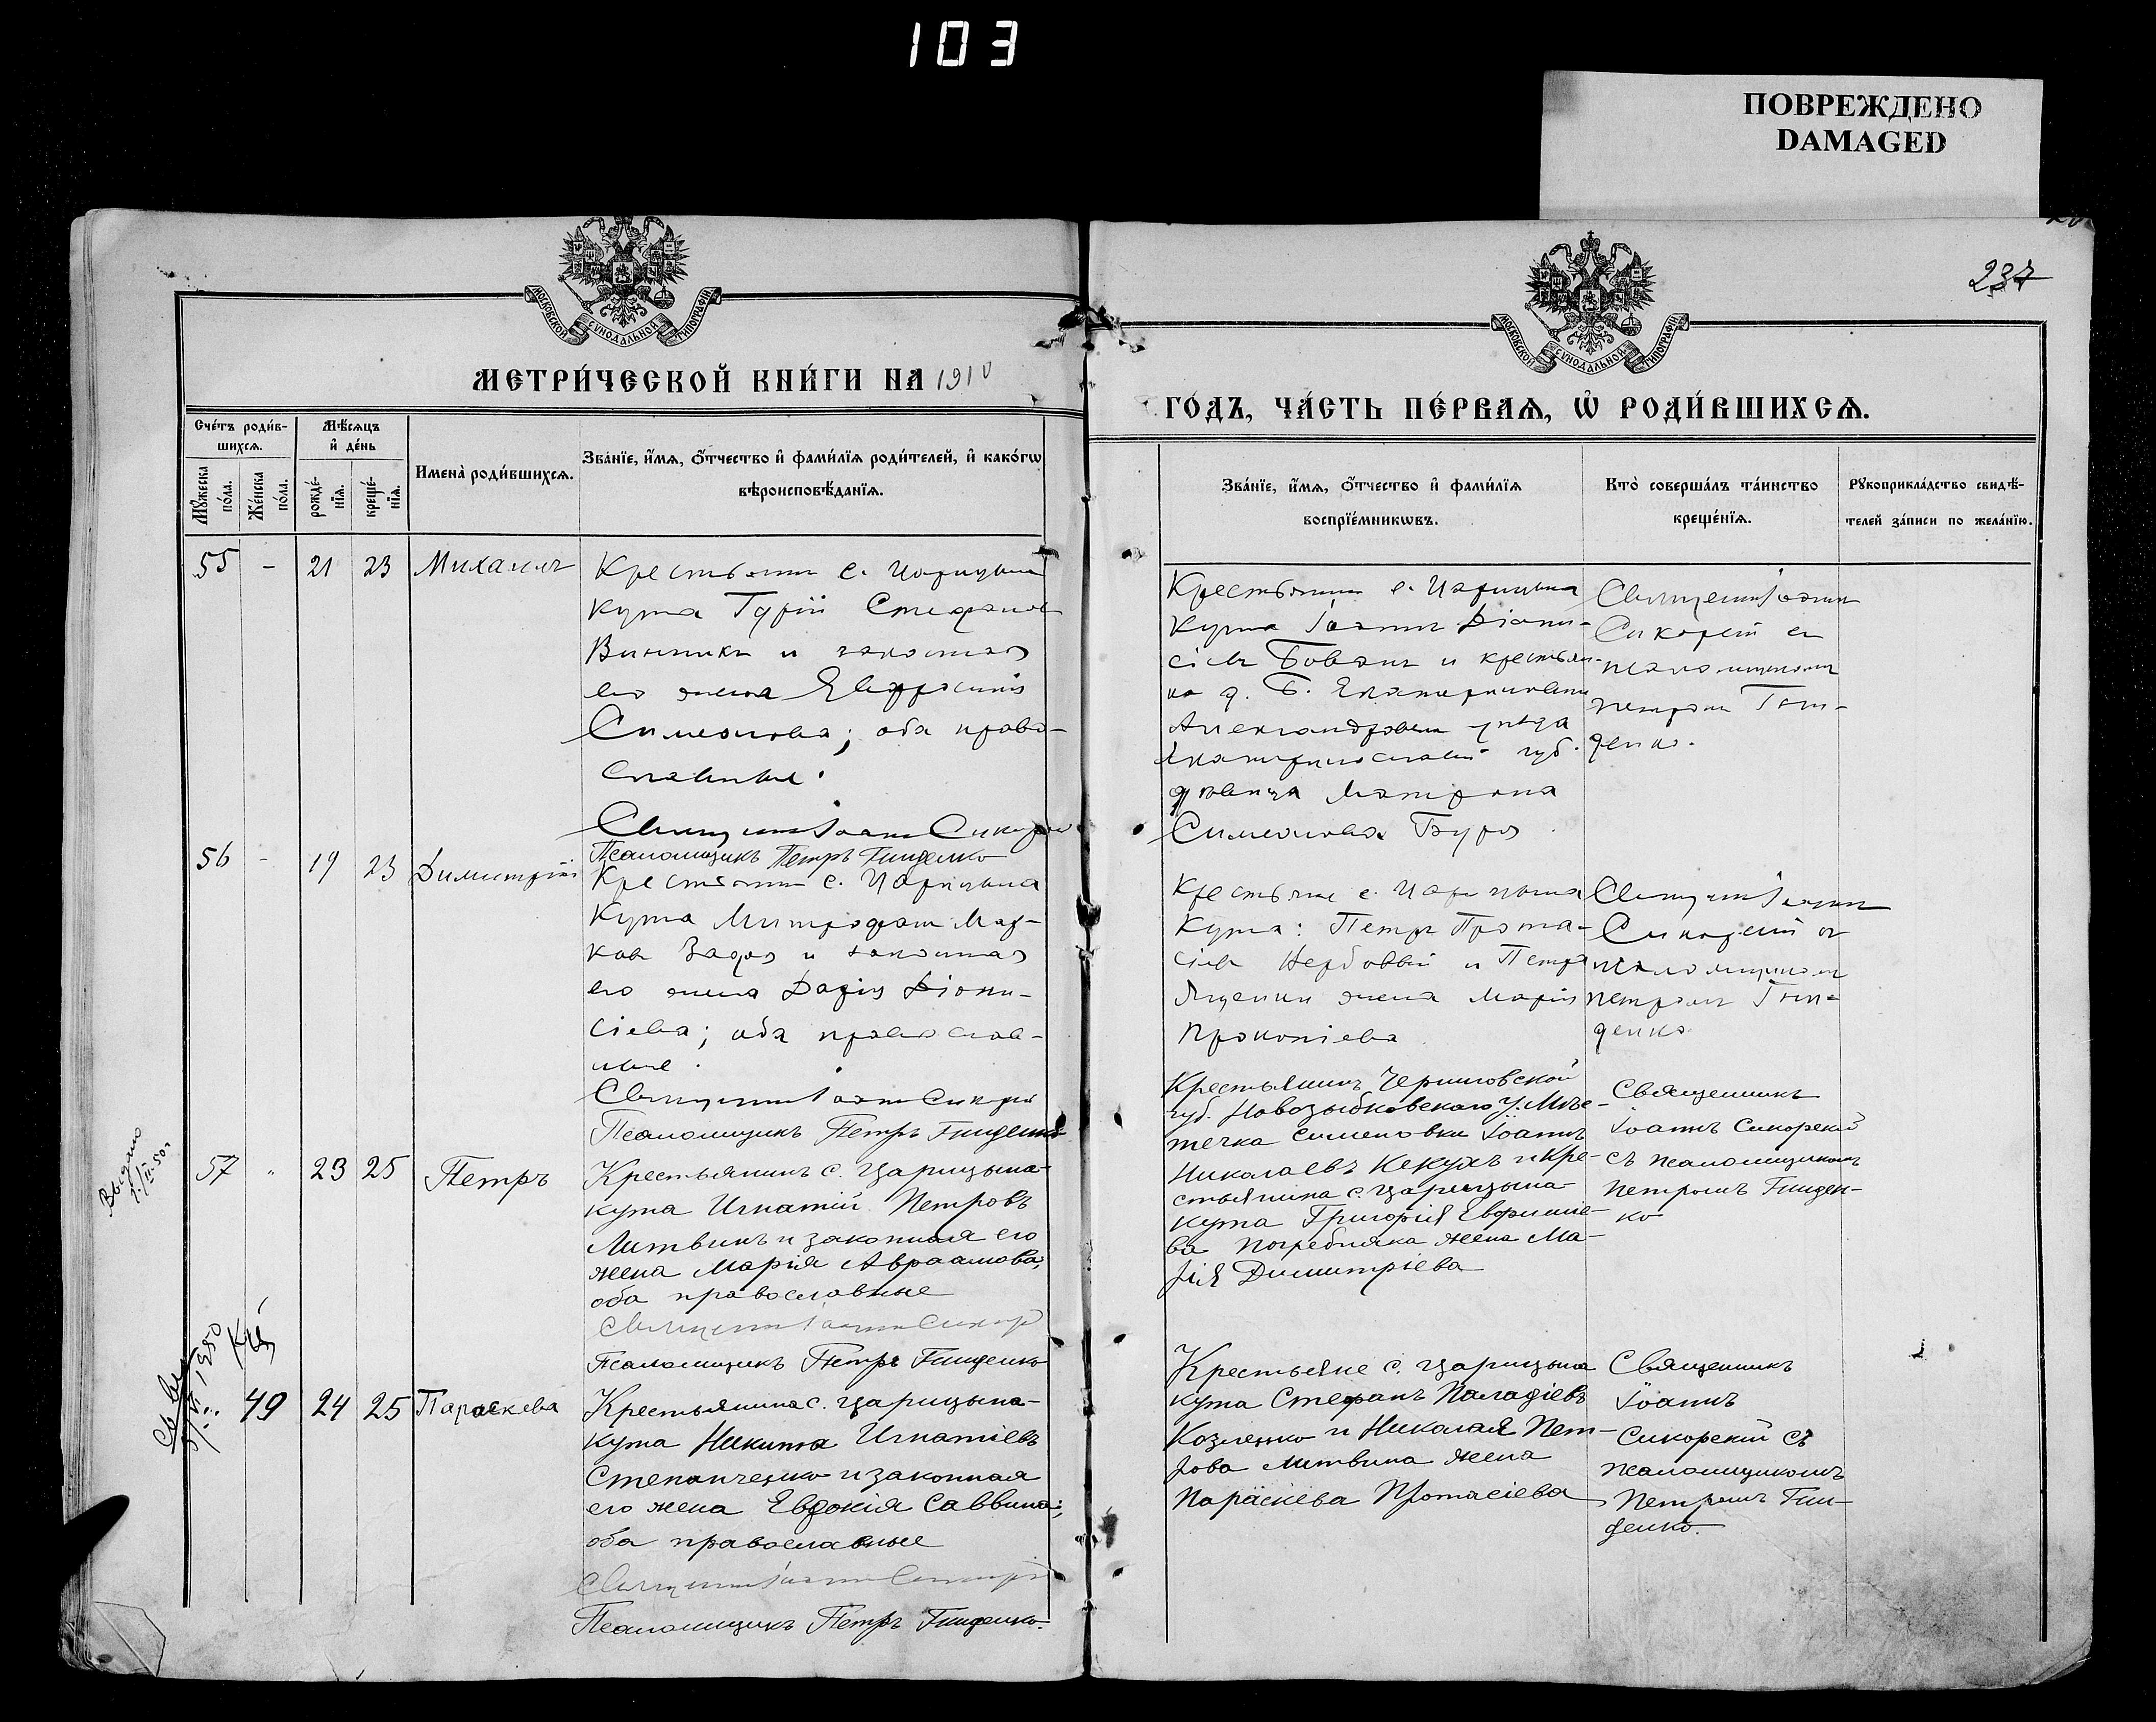 103
ПОВРЕЖДЕНО
DAMAGED
237
МОСКОВСКОЙ СУНОДАЛЬНОЙ ТИПОГРАФІИ
МОСКОВСКОЙ СУНОДАЛЬНОЙ ТИПОГРАФІИ
МЕТРИ́ЧЕСКОЙ КНИ́ГИ НА 1910
ГО́ДЪ, ЧА́СТЬ ПЕ́РВАѦ, Ѡ҆ РОДИ́ВШИХСѦ.
Сче́тъ роди́в-
шихсѧ.
Мꙋ́жеска по́ла.
Же́нска по́ла.
Мѣ́сѧцъ
и҆ де́нь
рожде́-
нїѧ.
креще́-
нїѧ.
Имена̀ роди́вшихсѧ.
Зва́нїе, и҆́мѧ, о҆́тчество и҆ фами́лїѧ роди́телей, и҆ како́гѡ
вѣроисповѣ́данїѧ.
Зва́нїе, и҆́мѧ, о҆́тчество и҆ фами́лїѧ
воспрїе́мникѡвъ.
Кто̀ соверша́лъ та́инство
креще́нїѧ.
Рꙋкоприкла́дство свидѣ́-
телей за́писи по жела́нїю.
55 - 21 23 Михаилъ
Крестьянин с. Царицына
Кута Гурій Стефанов
Винник и законная
его жена Евфросинія
Симеонова; оба право-
славные.
Священник Іоанн Сикорский
Псаломщикъ Петръ Гниденко
Крестьянин с. Царицына
Кута Іоаннъ Діони-
сіевъ Бован и крестьян-
ка д. Б. Екатериновки
Александровск уезда
Екатеринославской губ.
девица Матрона
Симеонова
Священник Іоанн
Сикорский съ
псаломщиком
Петром Гни-
денко.
56 - 19 23 Димитрій
Крестьянин с. Царицына
Кута Митрофан Мар-
ков и законная
его жена Дарія Діони-
сіева; оба православ-
ные.
Священник Іоанн Сикорский
Псаломщикъ Петръ Гниденко
Крестьяне с. Царицына
Кута: Петръ Прота-
сіев Нербовый и Петра
Яценки жена Марія
Прокопіева
Священник Іоанн
Сикорский съ
псаломщиком
Петромъ Гни-
денко
Выдано
57 " 23 25 Петръ
Крестьянинъ с. Царицына-
кута Игнатій Петровъ
Литвинъ и законная его
жена Марія Авраамова;
оба православные
Священник Іоанн Сикорский
Псаломщикъ Петръ Гниденко
Крестьянинъ Черниговской
губ. Новозыбковского у. Мѣс-
течка Семеновки Іоаннъ
Николаевъ Кекухъ и кре-
стьянина с. Царицына-
кута Григорія Евфиміе-
ва Погребняка жена Ма-
рія Димитріева
Священникъ
Іоаннъ Сикорскій
съ псаломщикомъ
Петромъ Гниден-
ко
49 24 25 Параскева
Крестьянина с. Царицына-
кута Никита Игнатіевъ
Степанченко и законная
его жена Евдокія Саввина;
оба православные
Священник Іоанн Сикорский
Псаломщикъ Петръ Гниденко.
Крестьяне с. Царицына
кута Стефанъ Паладіевъ
Козленко и Николая Пет-
рова Литвина жена
Параскева Протасіева
Священникъ
Іоаннъ
Сикорскій съ
псаломщикомъ
Петромъ Гни-
денко.